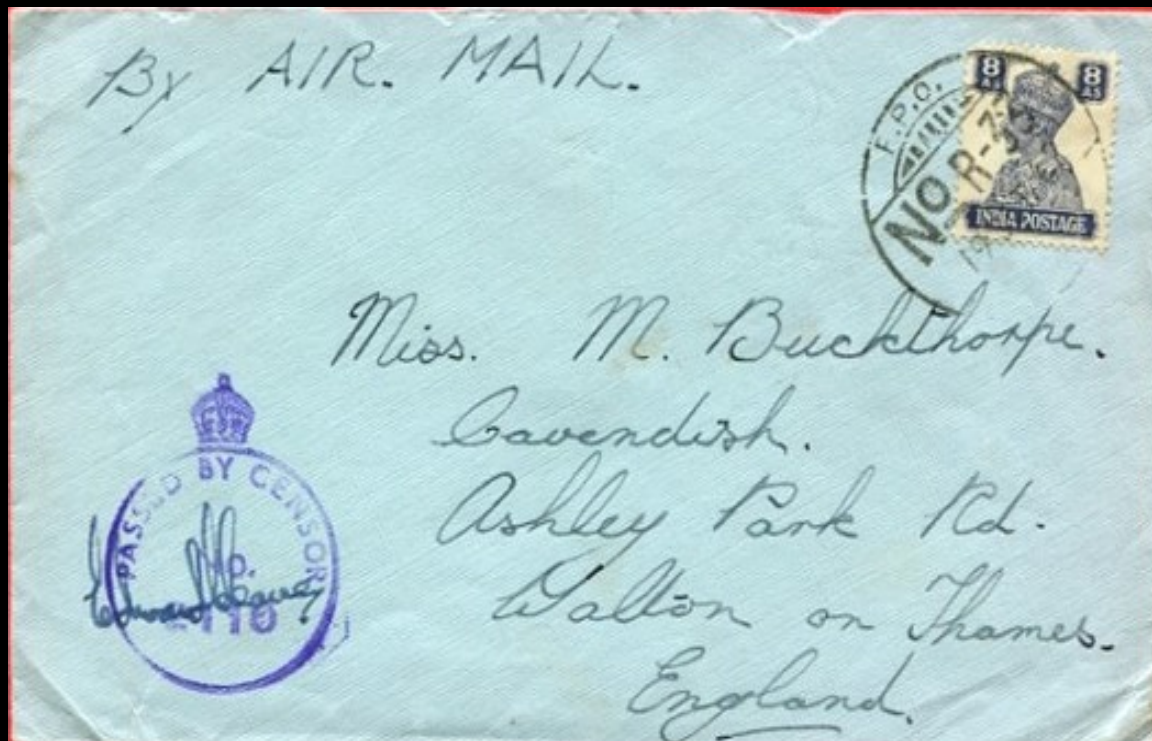 By AIR. MAIL.
8 8
AS AS
F.P.O.
NO R-
INDIA POSTAGE
Miss. M. Buckthorpe.
Cavendish.
Ashley Park Rd.
Walton on Thames.
England.
PASSED BY CENSOR
No.